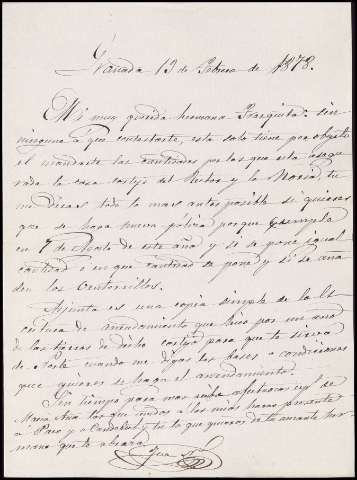 Granada 13 de Febrero de 1878.
Mi muy querida hermana Frasquita: sin
ninguna á que contestarte, esta solo tiene por objeto
el mandarte las cantidades por las que está asegu
rada la casa cortijo del y la Noria, tu
me dirás todo lo mas antes posible si quieres
que se haga nueva póliza porque cumple
en 7 de Agosto de este año y si se pone igual
cantidad ó en que cantidad se pone y si se aña
den los Ventorrillos.
Adjunta es una copia simple de la Es
critura de arrendamiento que hizo por un año
de las tierras de dicho cortijo para que te sirva
de Norte cuando me digas las bases o condiciones
que quieres se haga el arrendamiento.
Sin tiempo para mas recibe afectuosos de
Maria Ana los que unidos a los mios haras presente
á Paco y a Candelaria y tu lo que quieras de tu amante her
mano que te abraza